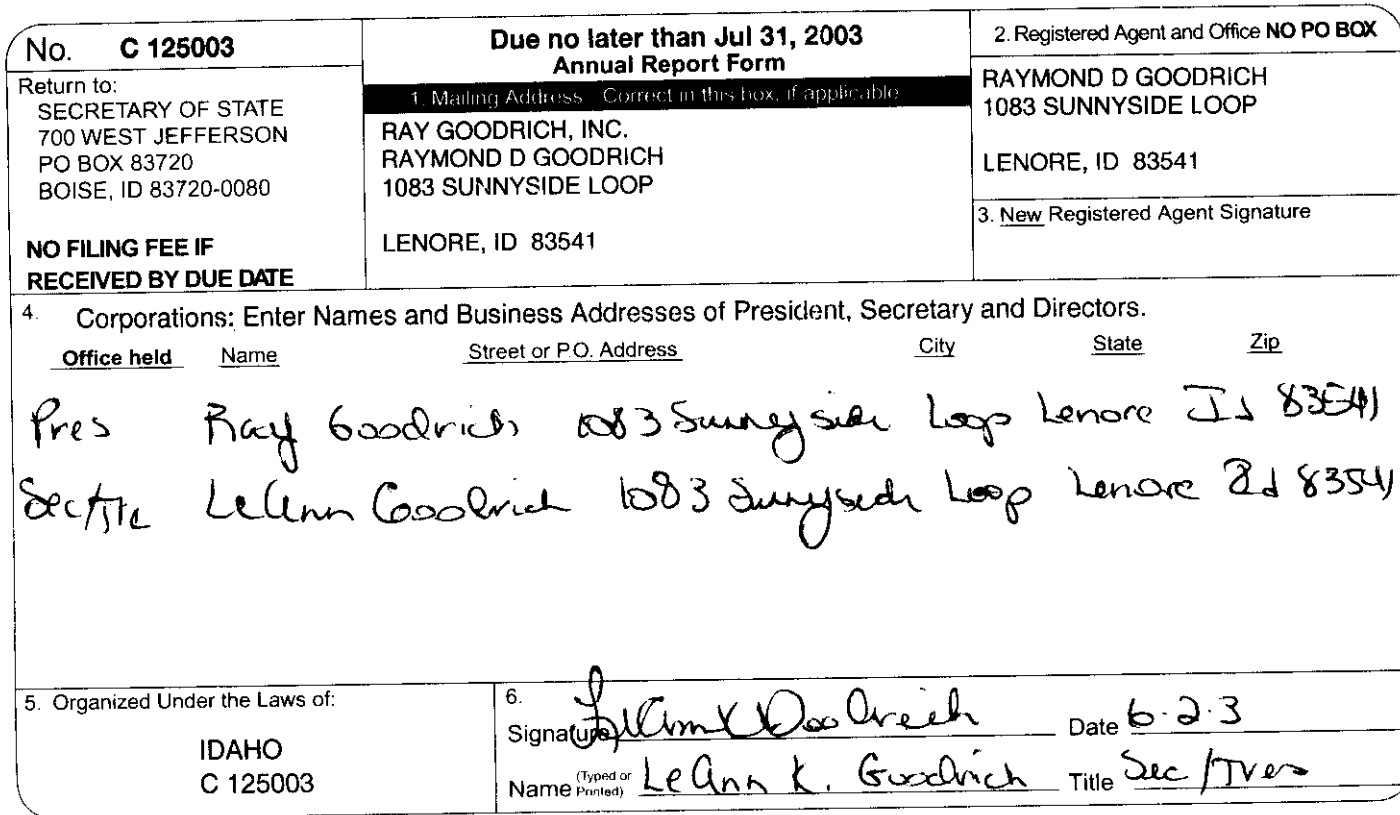 No. C 125003
Return to:
SECRETARY OF STATE
700 WEST JEFFERSON
PO BOX 83720
BOISE, ID 83720-0080
NO FILING FEE IF
RECEIVED BY DUE DATE
Due no later than Jul 31, 2003
Annual Report Form
1. Mailing Address Correct in this box, if applicable
RAY GOODRICH, INC.
RAYMOND D GOODRICH
1083 SUNNYSIDE LOOP
LENORE, ID 83541
2. Registered Agent and Office NO PO BOX
RAYMOND D GOODRICH
1083 SUNNYSIDE LOOP
LENORE, ID 83541
3. New Registered Agent Signature
4. Corporations: Enter Names and Business Addresses of President, Secretary and Directors.
Office held Name Street or P.O. Address City State Zip
Pres Ray Goodrich 1083 Sunnyside Loop Lenore Id 83541
Sec/Tre LeAnn Goodrich 1083 Sunnyside Loop Lenore Id 83541
5. Organized Under the Laws of:
IDAHO
C 125003
6.
Signature LeAnn K Goodrich Date 6-2-3
Name (Typed or Printed) LeAnn K. Goodrich Title Sec/Tres